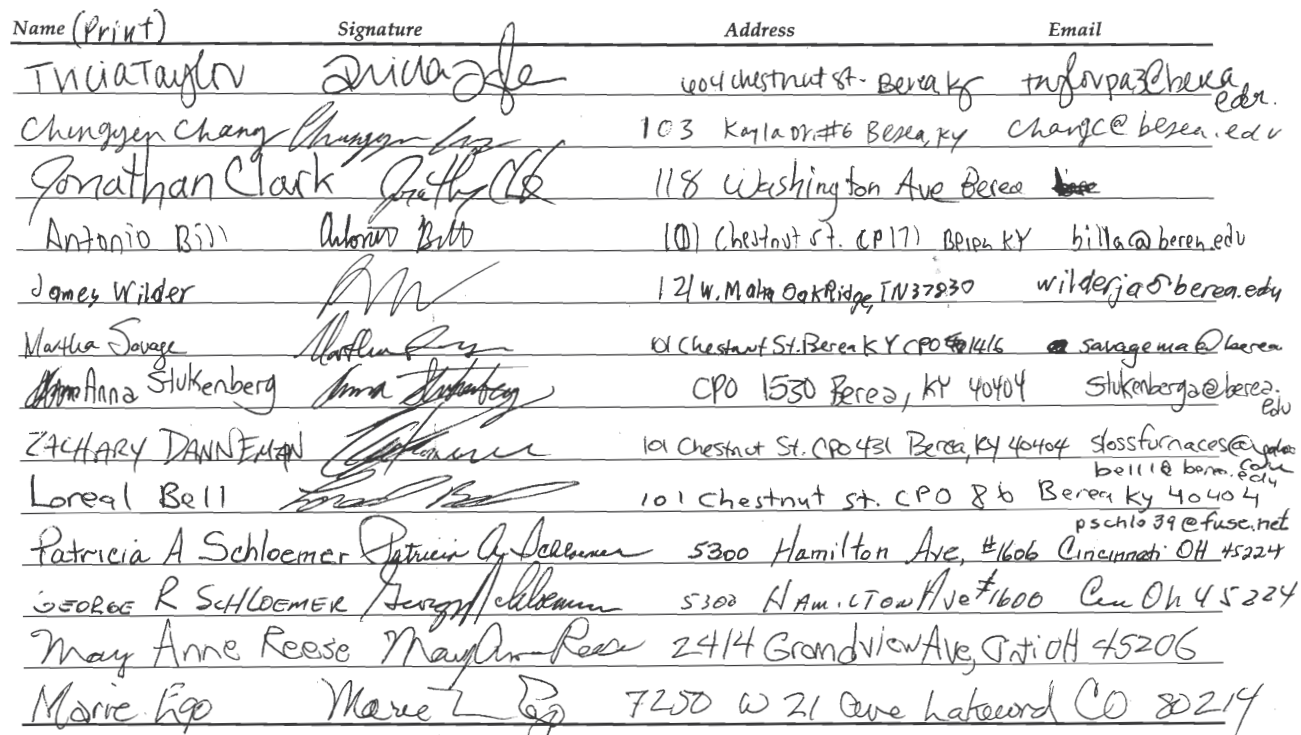 Name (Print) Signature Address Email
Tricia Taylor Tricia 604 Chestnut St. Berea Ky taylorpa3@berea
edu.
Chingyen Chang 103 Kayla Dr. #6 Berea, KY changc@berea.edu
Jonathan Clark 118 Washington Ave Berea
Antonio Bill Antonio Bill 101 Chestnut St. CP 171 Berea KY billa@berea.edu
James Wilder 121 W. Malta Oak Ridge, TN 37830 wilderja@berea.edu
Martha Savage Martha 101 Chestnut St. Berea KY CPO 1416 savagema@berea
Anna Stukenberg Anna Stukenberg CPO 1530 Berea, KY 40404 stukenberga@berea.
edu
ZACHARY DANNEMAN 101 Chestnut St. CPO 431 Berea, KY 40404 slossfurnaces@yahoo
bell1@berea.edu
Loreal Bell Loreal Bell 101 Chestnut St. CPO 86 Berea Ky 40404
pschlo39@fuse.net
Patricia A Schloemer Patricia A Schloemer 5300 Hamilton Ave, #1606 Cincinnati OH 45224
GEORGE R SCHLOEMER George R Schloemer 5300 HAMILTON AVE #1600 Cin Oh 45224
May Anne Reese May Ann Reese 2414 Grandview Ave, Cinti OH 45206
Marie Ego Marie Ego 7250 W 21 Ave Lakewood CO 80214